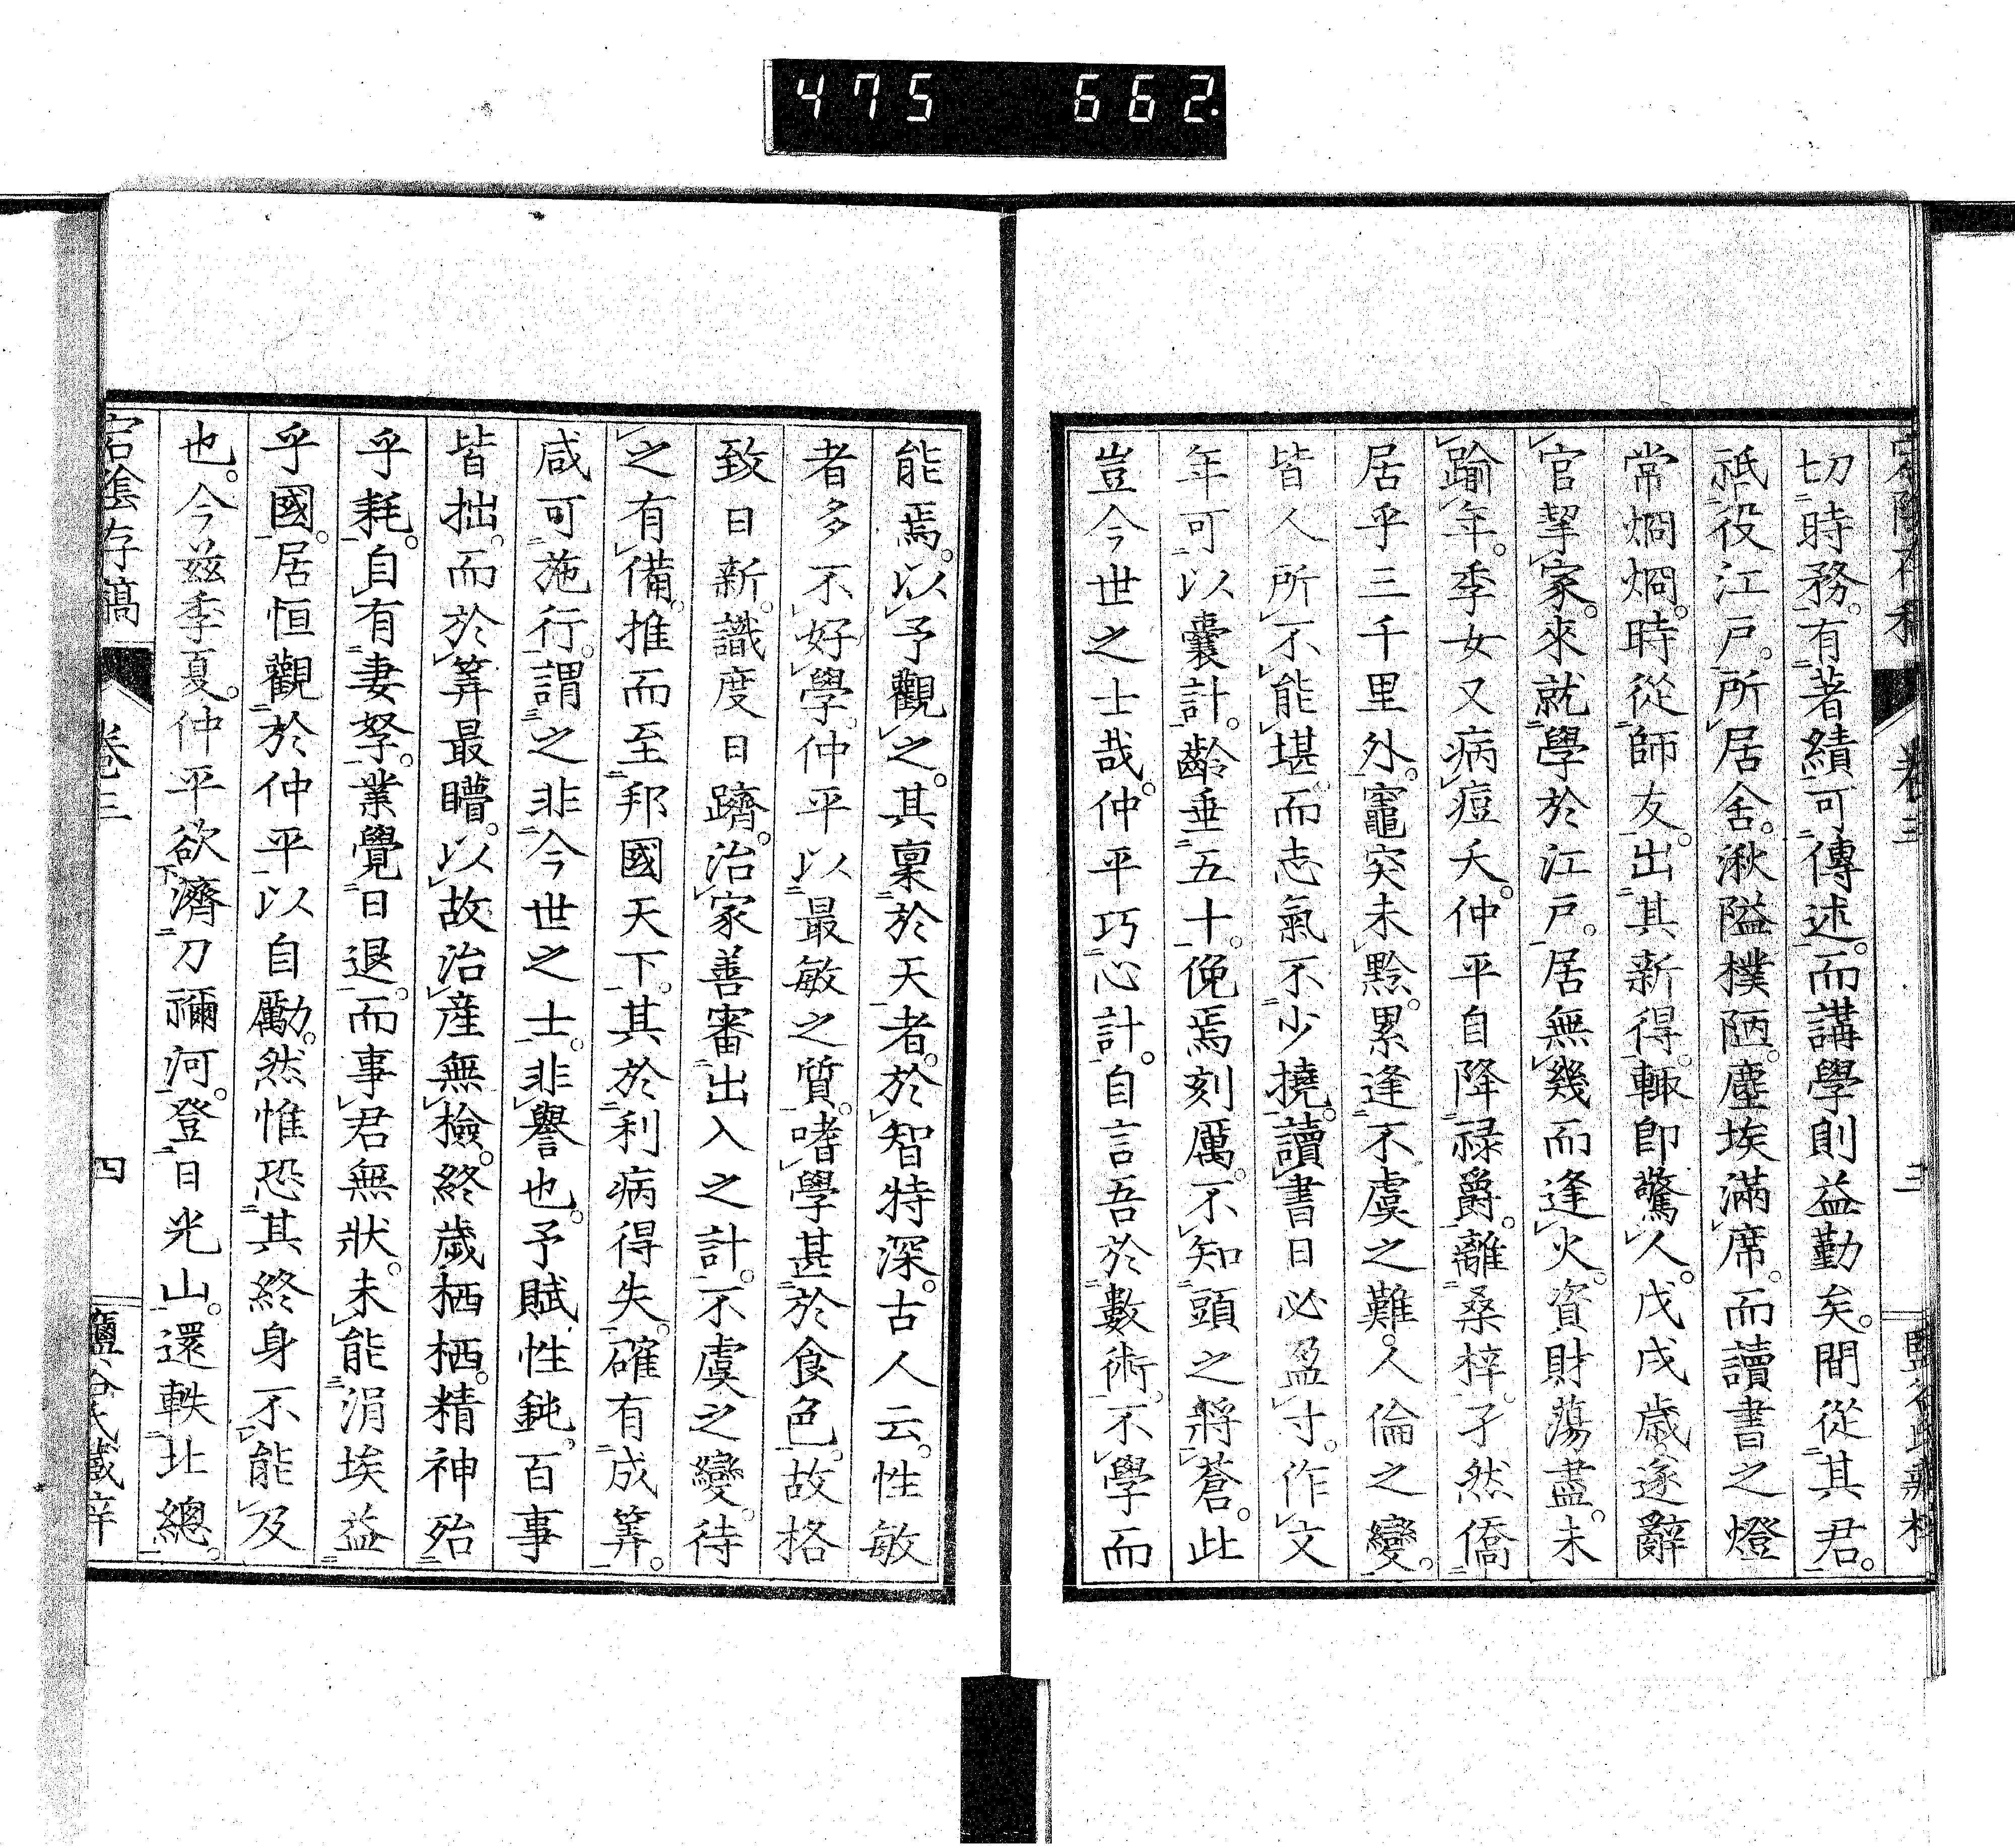 475 662.
卷三
三
切時務。有著績可傳述。而講學則益勤矣。間從其君。
祗役江戸。所居舍。湫隘樸陋。塵埃滿席。而讀書之燈
常烱烱。時從師友。出其新得。輙即驚人。戊戌歳。遂辭
官挈家。來就學於江戸。居無幾而逢火。資財蕩盡。未
踰年。季女又病痘夭。仲平自降禄爵。離桑梓。孑然僑
居乎三千里外。竈突未黔。累逢不虞之難。人倫之變。
皆人所不能堪。而志氣不少撓。讀書日必盈寸。作文
年可以嚢計。齡垂五十。俛焉刻厲。不知頭之將蒼。此
豈今世之士哉。仲平巧心計。自言吾於數術。不學而
能焉。以予觀之。其稟於天者。於智特深。古人云。性敏
者多不好學。仲平以最敏之質。嗜學甚於食色。故格
致日新。識度日躋。治家善審出入之計。不虞之變。待
之有備。推而至邦國天下。其於利病得失。確有成筭。
咸可施行。謂之非今世之士。非譽也。予賦性鈍。百事
皆拙。而於筭最矒。以故治産無檢。終歳栖栖。精神殆
乎耗。自有妻孥。業覺日退。而事君無狀。未能涓埃益
乎國。居恒觀於仲平以自勵。然惟恐其終身不能及
也。今茲季夏。仲平欲濟刀禰河。登日光山。還軼北總。
宕陰存稿
卷三
四